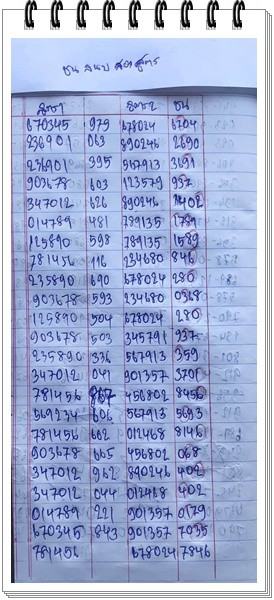 ชน ลบบ สองสูตร
สูตร1 สูตร2 ชน
670345 979 678024 6704
236901 063 890246 2690
236901 395 567913 3691
903678 603 123579 937
347012 626 890246 2402
014789 481 789135 1789
125890 598 789135 1589
781456 116 234680 846
235890 690 678024 280
903678 593 234680 0368
125890 504 678024 280
903678 503 345791 937
235890 336 567913 359
347012 041 901357 3701
781456 867 456802 8456
569234 606 567913 5693
781456 602 012468 8146
903678 665 456802 068
347012 962 890246 402
347012 044 012468 402
014789 221 901357 0179
670345 843 901357 7035
781456 678024 7846